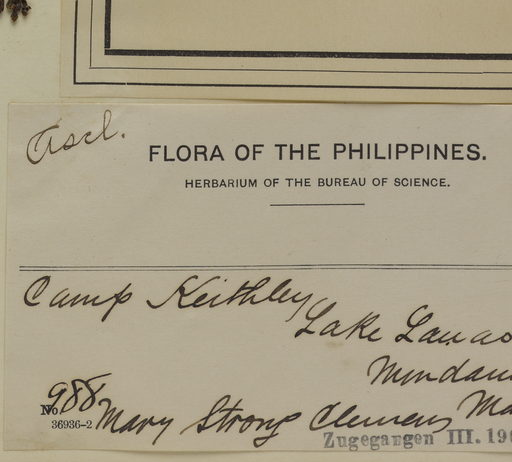 Ascl.
FLORA OF THE PHILIPPINES.
HERBARIUM OF THE BUREAU OF SCIENCE.
Camp Keithley
Lake Lanao
Mindan
No 988
36936-2
Mary Strong Clemens Ma
Zugegangen III. 19